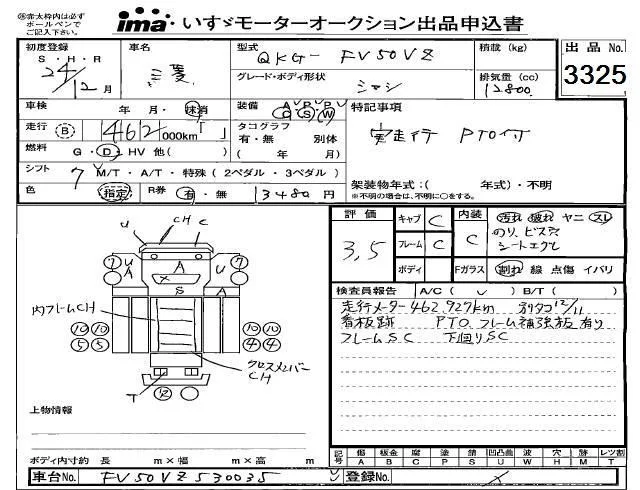 ㊟赤太枠内は必ず
ボールペンで
ご記入下さい。
ima いすゞモーターオークション出品申込書
初度登録
S・H・R
24/2月
車名
三菱
型式
QKG-FV50VZ
グレード・ボディ形状
シャシ
積載(kg)
排気量(cc)
12800
出品No.
3325
車検 年 月・抹消
走行 B 462,000km
燃料 G・D・HV 他( )
シフト 7 M/T・A/T・特殊(2ペダル・3ペダル)
色 指定 R券 有・無 13480円
装備 A P P
C S W
タコグラフ
有・無 別体
( 年 月)
特記事項
実走行 PTO付
架装物年式:( 年式)・不明
※不明の場合は、不明に○をする。
評価
3.5
キャブ C
フレーム C
ボディ
内装 C
Fガラス
汚れ 破れ ヤニ スレ
のり、ビス穴
シートエグレ
割れ 線 点傷 イバリ
検査員報告 A/C( ) B/T( )
走行メーター462,927km 別タコ12/11
看板跡 PTO フレーム補強板有り
フレームSC 下回りSC
U CH C
7 U A A U 7 A
S
内フレームCH
10 10 10 10
5 5 4 4
クロスメンバーCH
T 12
上物情報
ボディ内寸約 長 m×幅 m×高 m
記号 傷 板金 腐 塗 錆 凹凸曲 波 穴 跡 レツ割
A B C P S U W H M T
車台No. FV50VZ530035
登録No.